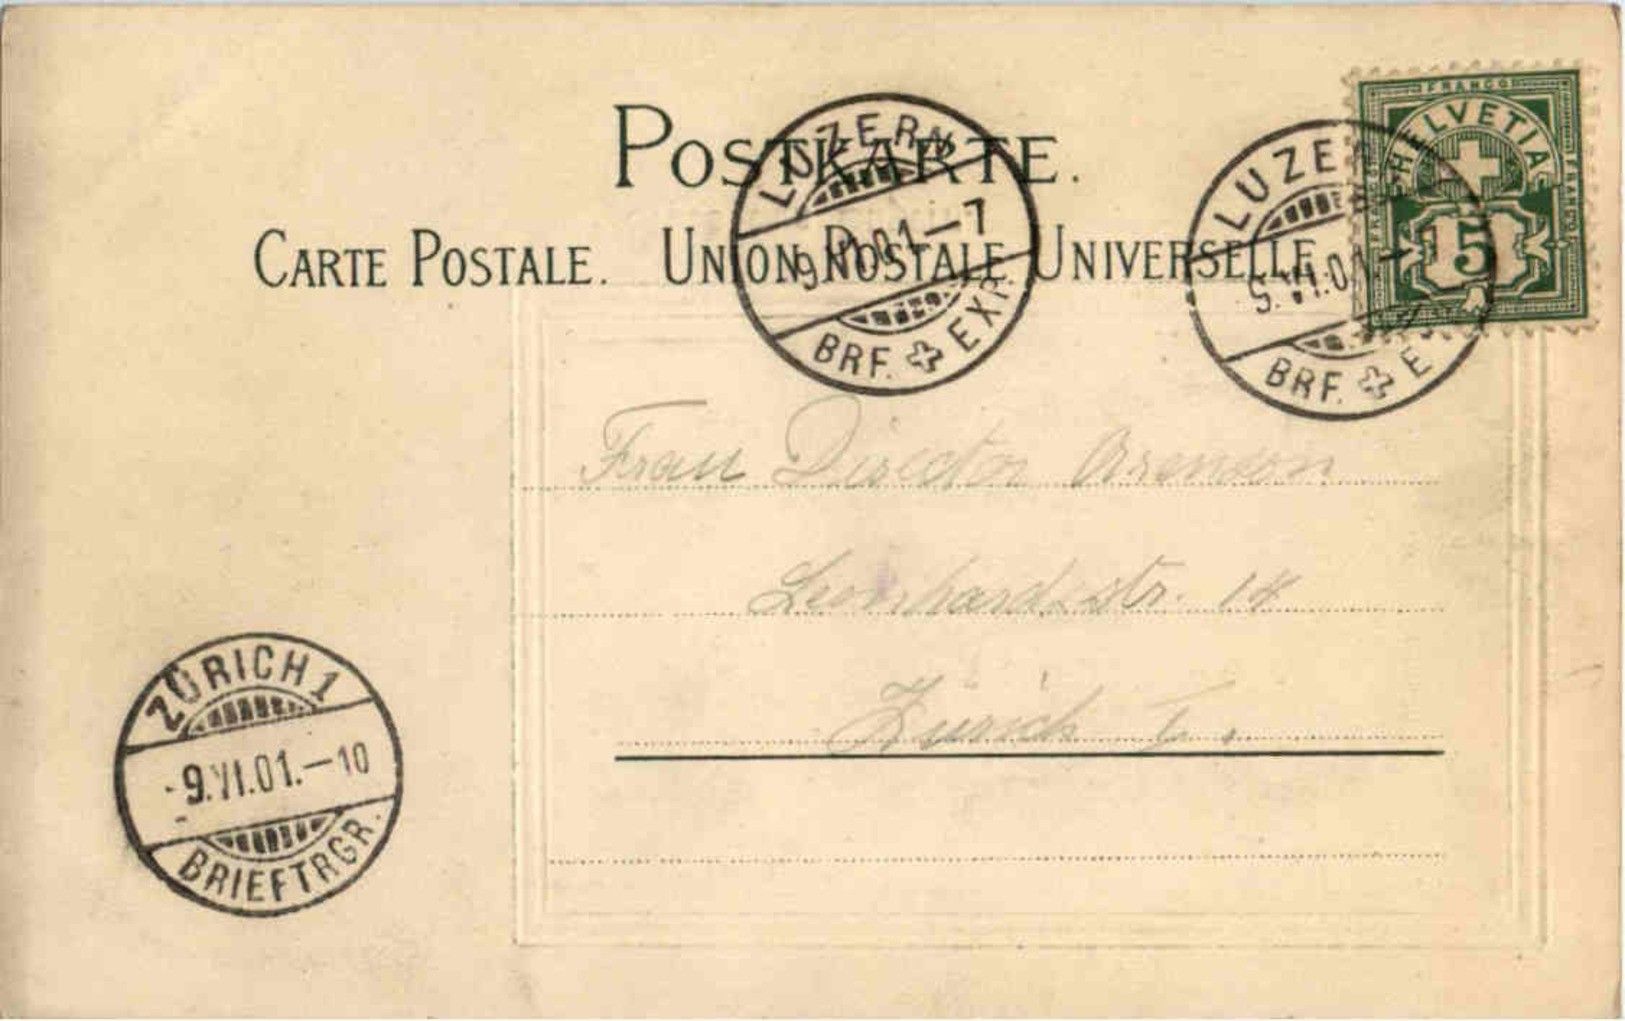 POSTKARTE.
CARTE POSTALE. UNION POSTALE UNIVERSELLE.
LUZERN
9.VI.01.—7
BRF. EXP.
LUZE
VI.01.
BRF. E
FRANCO
HELVETIA
FRANCO
FRANCO
5
Frau Director
Leonhardstr. 14
Zürich I.
ZÜRICH 1
-9.VI.01.—10
BRIEFTRGR.